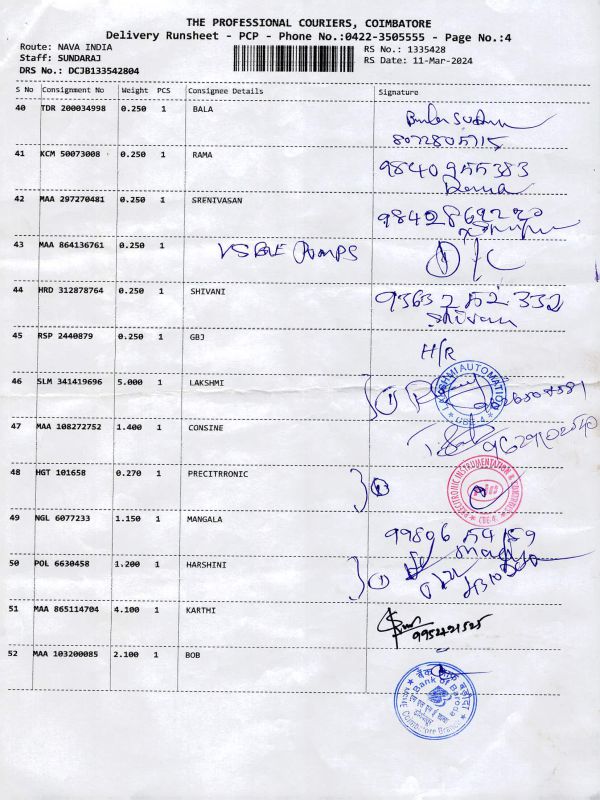 THE PROFESSIONAL COURIERS, COIMBATORE
Delivery Runsheet - PCP - Phone No.:0422-3505555 - Page No.:4
Route: NAVA INDIA RS No.: 1335428
Staff: SUNDARAJ RS Date: 11-Mar-2024
DRS No.: DCJB133542804
S No Consignment No Weight PCS Consignee Details Signature
40 TDR 200034998 0.250 1 BALA
8072805715
41 KCM 50073008 0.250 1 RAMA 9840955383
Rema
42 MAA 297270481 0.250 1 SRENIVASAN
43 MAA 864136761 0.250 1 PUMPS
44 HRD 312878764 0.250 1 SHIVANI 9363252332
Shivani
45 RSP 2440879 0.250 1 GBJ H/R
46 SLM 341419696 5.000 1 LAKSHMI 1 LAKSHMI AUTOMATION
47 MAA 108272752 1.400 1 CONSINE
48 HGT 101658 0.270 1 PRECITRRONIC 1
49 NGL 6077233 1.150 1 MANGALA 99896 54159
50 POL 6630458 1.200 1 HARSHINI 1
51 MAA 865114704 4.100 1 KARTHI
52 MAA 103200085 2.100 1 BOB Bank of Baroda